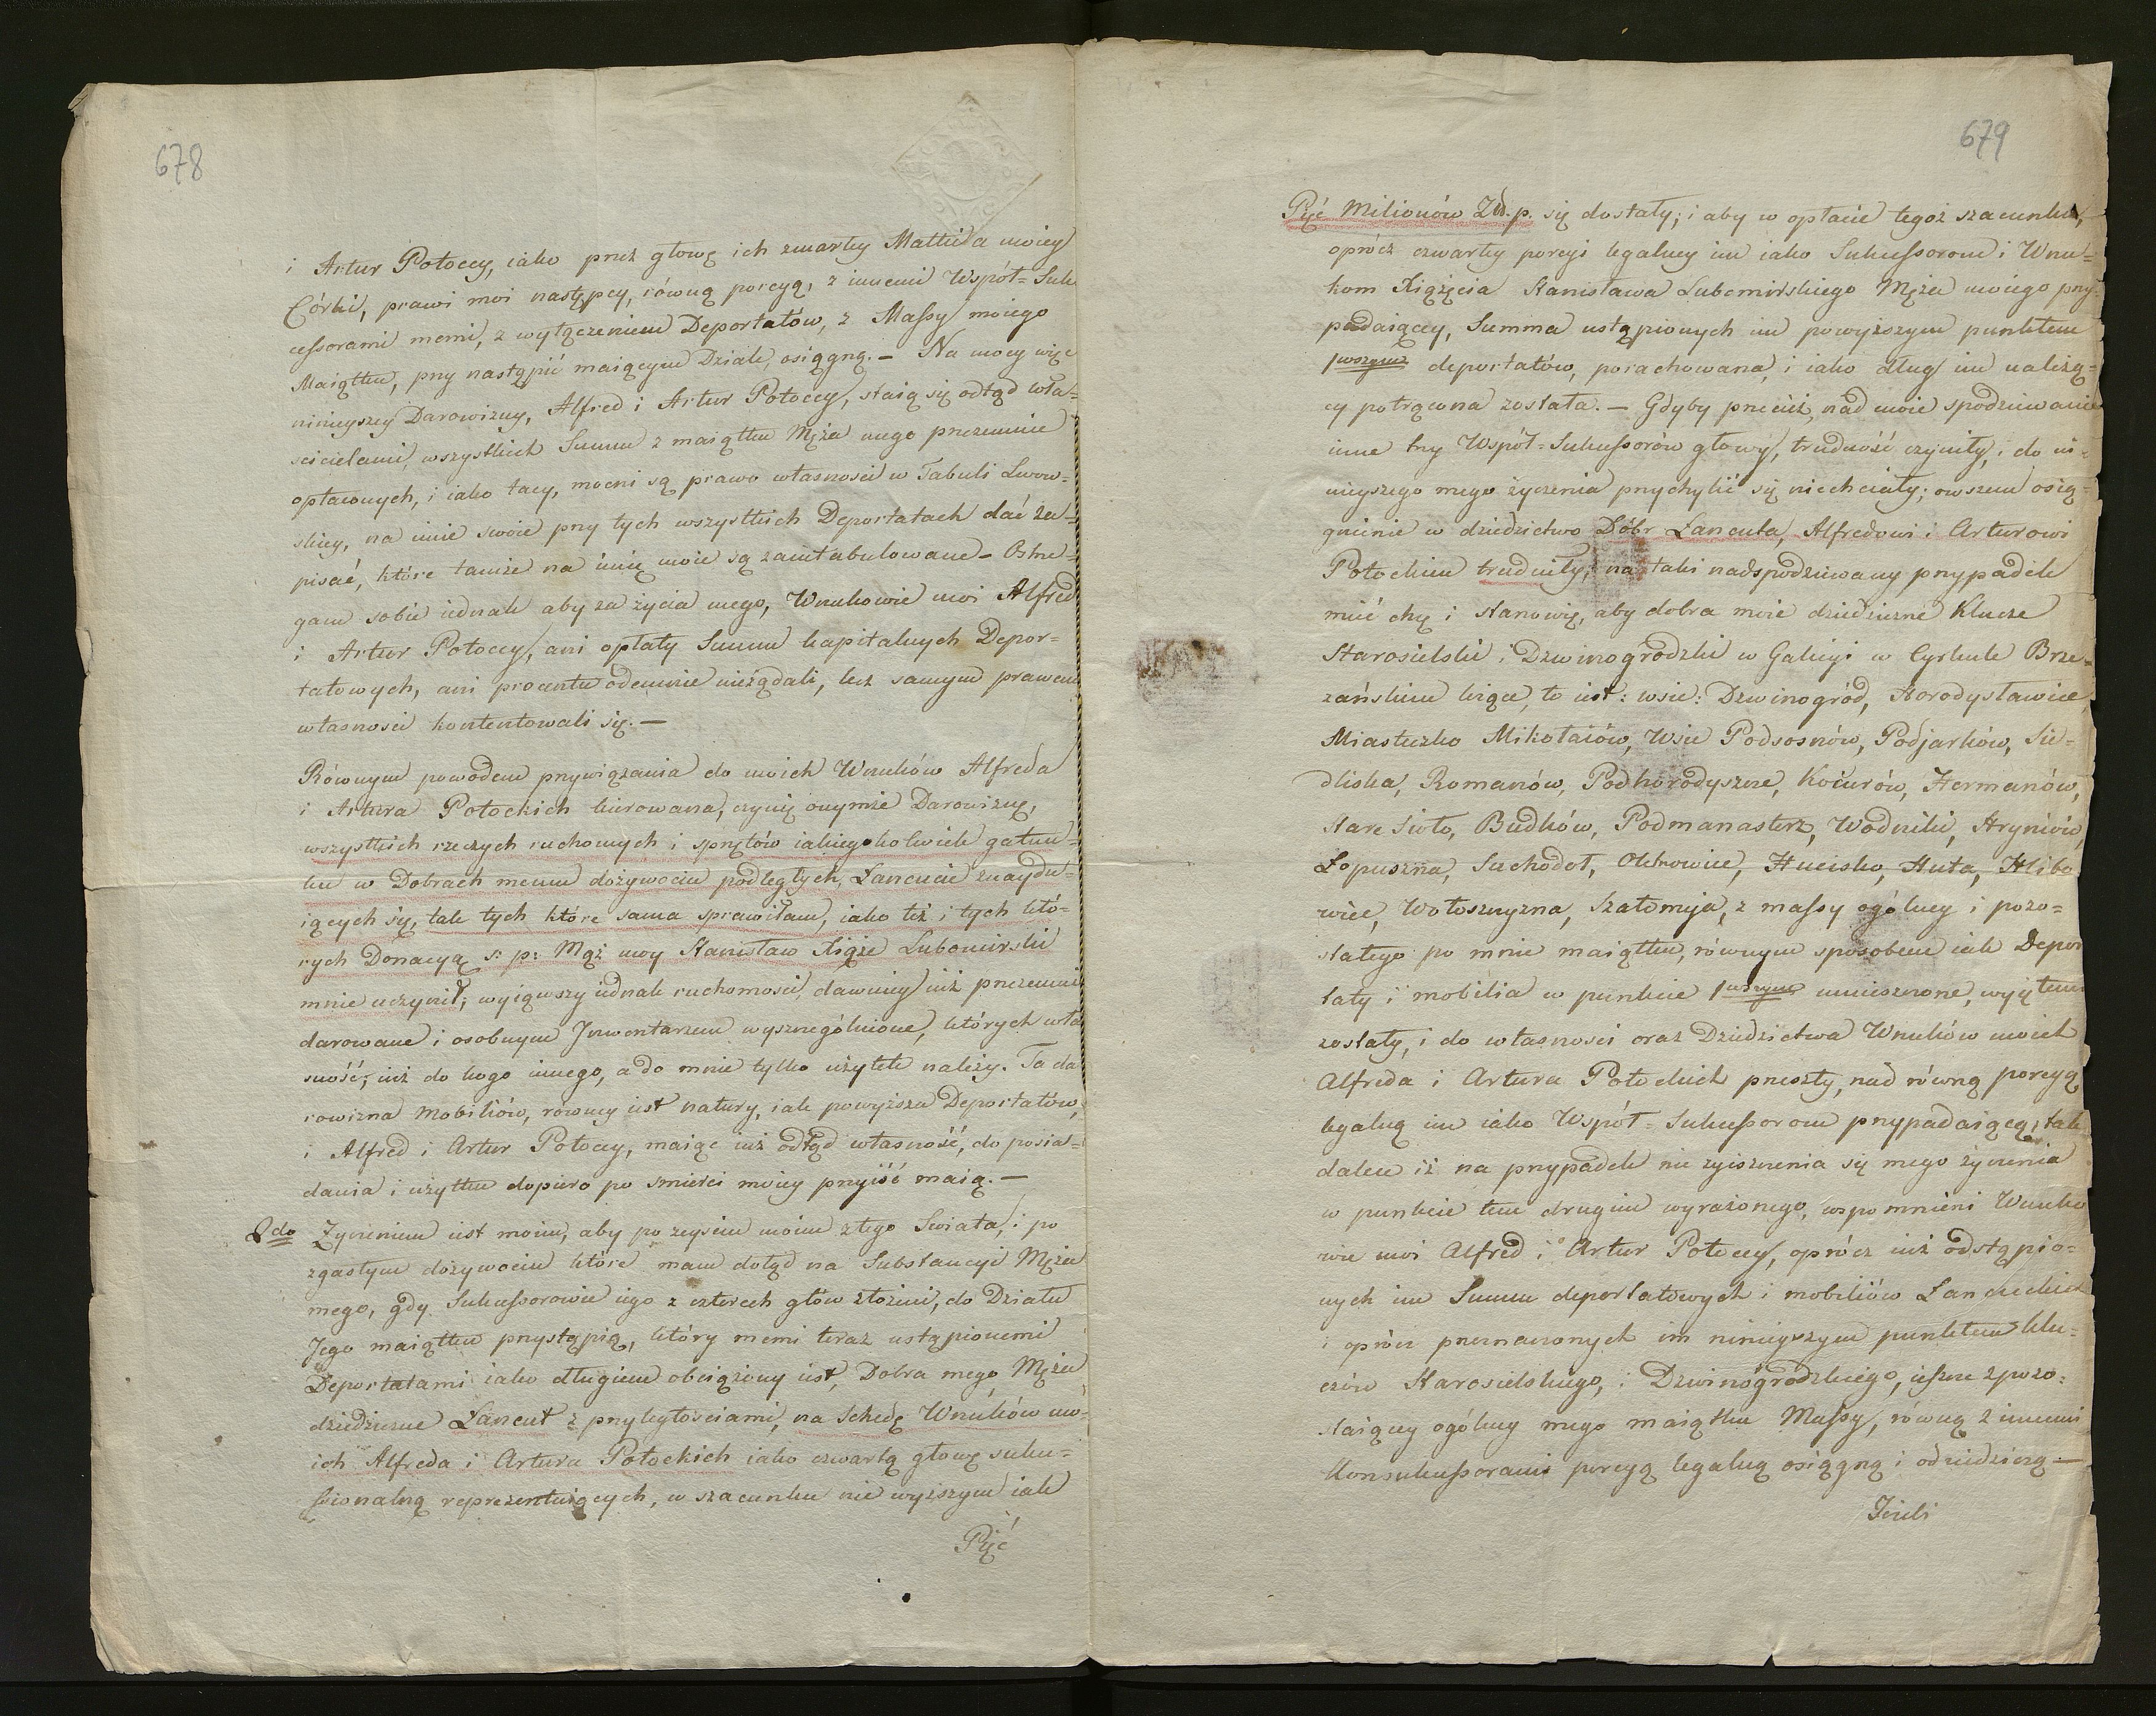 678
i Artur Potoccy, iako przez głowę ich zmarłey Matki a moiey
Córki, prawi moi następcy, równą porcyą, z innemi Współ=Suk
cessorami memi, z wyłączeniem Deportatów, z Massy moiego
Maiątku, przy nastąpić maiącym Dziale, osiągną. – Na mocy więc
ninieyszey Darowizny, Alfred i Artur Potoccy, staią się odtąd wła=
ścicielami, wszystkich Summ z maiątku Męża mego przezemnie
opłaconych, i iako tacy, mocni są prawo własności w Tabuli Lwow=
skiey, na imie swoie przy tych wszystkich Deportatach dać za=
pisać, które tamże na imię moie są zaintabulowane – Ostrze=
gam sobie iednak aby za życia mego, Wnukowie moi Alfred
i Artur Potoccy, ani opłaty Summ kapitalnych Depor=
tatowych, ani procentu odemnie nieżądali, lecz samym prawem
własności kontentowali się. —
Równym powodem przywiązania do moich Wnuków Alfreda
i Artura Potockich kierowana, czynię onymże Darowiznę,
wszystkich rzeczych ruchomych i sprzętów iakiegokolwiek gatun=
ku w Dobrach memu dożywociu podległych, Łancucie znaydu=
iących się, tak tych które sama sprawiłam, iako też i tych któ=
rych Donacyą ś: p: Mąż moy Stanisław Xiąże Lubomirski
mnie uczynił; wyiąwszy iednak ruchomości, dawniey iuż przezemnie
darowane i osobnym Inwentarzem wyszczególnione, których wła
sność, iuż do kogo innego, a do mnie tylko użytek należy. Ta da
rowizna Mobiliów, równey iest natury, iak powyższa Deportatów,
i Alfred i Artur Potoccy, maiąc iuż odtąd własność, do posia=
dania i użytku dopiero po śmierci moiey przyiść maią. —
2do Życzeniem iest moim, aby po zeyściu moim z tego Swiata, i po
zgasłym dożywociu które mam dotąd na Substancyi Męża
mego, gdy Sukcessorowie iego z czterech głów złożeni, do Działu
Jego maiątku przystąpią, który memi teraz ustąpionemi
Deportatami iako długiem obciążony iest, Dobra mego Męża
dziedziczne Łancut z przyległościami, na Schedę Wnuków mo=
ich Alfreda i Artura Potockich iako czwartą głowę sukce=
ssionalną reprezentuiących, w szacunku nie wyższym iak
Pięć
679
Pięć Milionów Złł. p. się dostały; i aby w opłacie tegoż szacunku,
oprócz czwartey porcyi legalney im iako Sukcessorom i Wnu=
kom Xiążęcia Stanisława Lubomirskiego Męża moiego przy=
padaiącey, Summa ustąpionych im powyższym punktem
1wszym deportatów, porachowana, i iako dług im należą=
cy potrącona została. — Gdyby przecież, nad moie spodziewanie
inne trzy Współ=Sukcessorów głowy, trudność czyniły, i do ni=
nieyszego mego życzenia przychylić się niechciały; owszem osią=
gnienie w dziedzictwo Dóbr Łancuta, Alfredowi i Arturowi
Potockim trudniły; na taki nadspodziewany przypadek
mieć chcę i stanowię, aby dobra moie dziedziczne Klucze
Starosielski i Dzwinogrodzki w Galicyi w Cyrkule Brze=
zańskim leżące, to iest: wsie: Dzwinogród, Horodysławice
Miasteczko Mikołaiów, Wsie Podsosnów, Podjarków, Sie=
dliska, Romanów, Podhorodyszcze, Kociurów, Hermanów,
Stare Sioło, Budków, Podmanasterz, Wodniki, Hryniów,
Łopuszna, Suchodoł, Olchowice, Hucisko, Huta, Hlibo
wice, Wołoszczyzna, Szałomyja, z massy ogólney i pozo=
stałego po mnie maiątku, równym sposobem iak Depor
taty i mobilia w punkcie 1wszym umieszczone, wyięte
zostały, i do własności oraz Dziedzictwa Wnuków moich
Alfreda i Artura Potockich przeszły, nad równą porcyą
legalną im iako Współ=Sukcessorom przypadaiącą, tak
dalece iż na przypadek nie ziszczenia się mego życzenia
w punkcie tem drugim wyrażonego, wspomnieni Wnuko
wie moi Alfred i Artur Potoccy, oprócz iuż odstąpio=
nych im Summ deportatowych i mobiliów Łancuckich
i oprócz przeznaczonych im ninieyszym punktem Klu=
czów Starosielskiego, i Dzwinogrodzkiego, ieszcze z pozo=
staiącey ogólney mego maiątku Massy, równą z innemi
Konsukcessorami porcyą legalną osiągną i odziedziczą —
Jeżeli